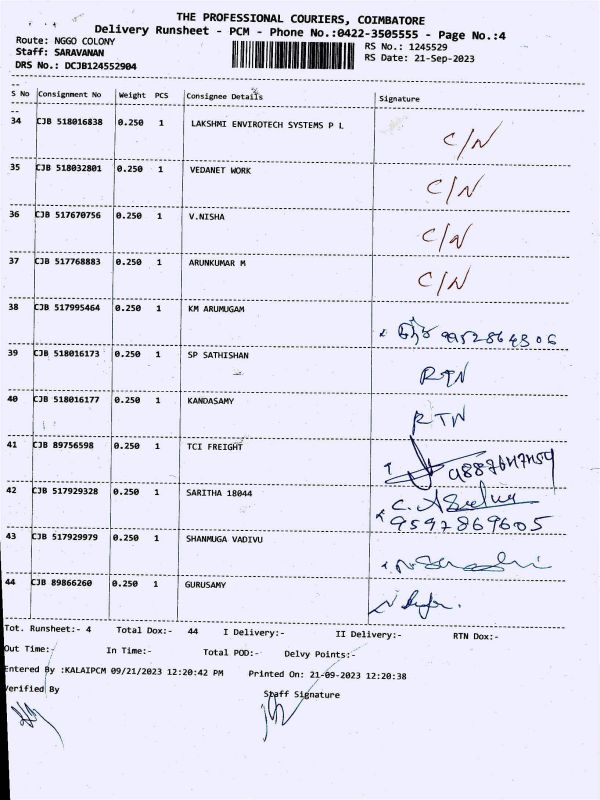 THE PROFESSIONAL COURIERS, COIMBATORE
Delivery Runsheet - PCM - Phone No.:0422-3505555 - Page No.:4
Route: NGGO COLONY RS No.: 1245529
Staff: SARAVANAN RS Date: 21-Sep-2023
DRS No.: DCJB124552904
S No Consignment No Weight PCS Consignee Details Signature
34 CJB 518016838 0.250 1 LAKSHMI ENVIROTECH SYSTEMS P L C/N
35 CJB 518032801 0.250 1 VEDANET WORK C/N
36 CJB 517670756 0.250 1 V.NISHA C/N
37 CJB 517768883 0.250 1 ARUNKUMAR M C/N
38 CJB 517995464 0.250 1 KM ARUMUGAM
39 CJB 518016173 0.250 1 SP SATHISHAN RTN
40 CJB 518016177 0.250 1 KANDASAMY RTN
41 CJB 89756598 0.250 1 TCI FREIGHT
42 CJB 517929328 0.250 1 SARITHA 18044
9597869605
43 CJB 517929979 0.250 1 SHANMUGA VADIVU
44 CJB 89866260 0.250 1 GURUSAMY
Tot. Runsheet:- 4 Total Dox:- 44 I Delivery:- II Delivery:- RTN Dox:-
Out Time:- In Time:- Total POD:- Delvy Points:-
Entered By :KALAIPCM 09/21/2023 12:20:42 PM Printed On: 21-09-2023 12:20:38
Verified By Staff Signature